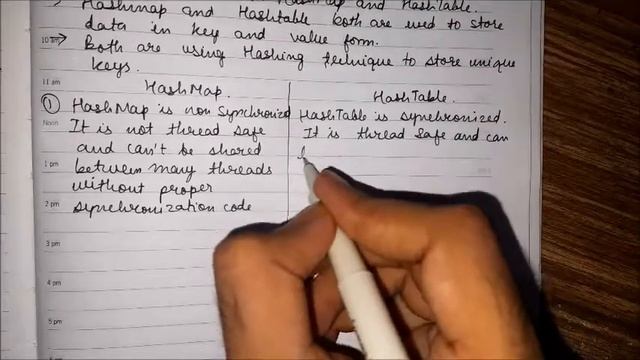 HashMap and HashTable.
→ Hashmap and Hashtable both are used to store
data in key and value form.
10 am → Both are using Hashing technique to store unique
keys.
11 am
HashMap.
① HashMap is non Synchronized
Noon It is not thread safe
and can't be shared
1 pm between many threads
without proper
2 pm synchronization code
HashTable.
HashTable is synchronized.
It is thread safe and can
3 pm
4 pm
5 pm